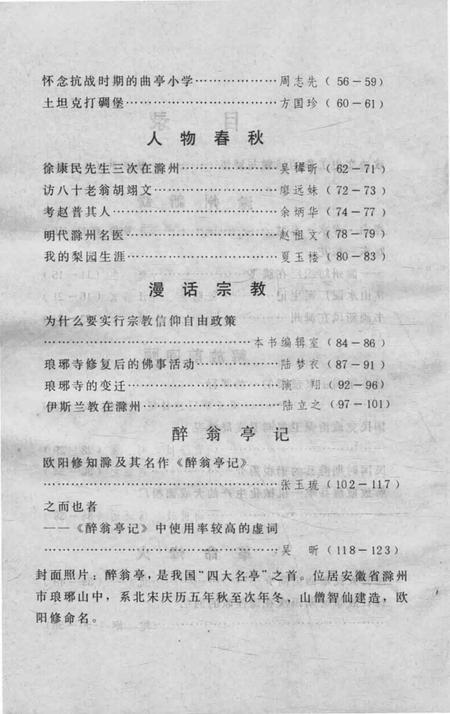 怀念抗战时期的曲亭小学………………周志先（56－59）
土坦克打碉堡……………………………方国珍（60－61）
人物春秋
徐康民先生三次在滁州…………………吴樨昕（62－71）
访八十老翁胡翊文………………………廖远妹（72－73）
考赵普其人………………………………余炳华（74－77）
明代滁州名医……………………………赵祖文（78－79）
我的梨园生涯……………………………夏玉楼（80－83）
漫话宗教
为什么要实行宗教信仰自由政策
……………………………………本书编辑室（84－86）
琅琊寺修复后的佛事活动………………陆梦衣（87－91）
琅琊寺的变迁……………………………演翔（92－96）
伊斯兰教在滁州…………………………陆立之（97－101）
醉翁亭记
欧阳修知滁及其名作《醉翁亭记》
……………………………………张玉琉（102－117）
之而也者
——《醉翁亭记》中使用率较高的虚词
……………………………………吴昕（118－123）
封面照片：醉翁亭，是我国“四大名亭”之首。位居安徽省滁州
市琅琊山中，系北宋庆历五年秋至次年冬，山僧智仙建造，欧
阳修命名。